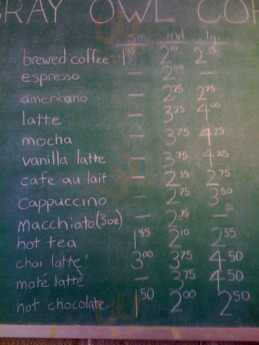 GRAY OWL COF
sm. md. lg.
brewed coffee 1 85 2 10 2 35
espresso — 2 00 —
americano — 2 25 2 75
latte — 3 25 4 00
mocha — 3 75 4 25
vanilla latte — 3 75 4 25
cafe au lait — 2 35 2 75
Cappuccino — 2 75 3 50
Macchiato (3oz) — 2 75 —
hot tea 1 85 2 10 2 35
chai latte 3 00 3 75 4 50
maté latte — 3 75 4 50
hot chocolate 1 50 2 00 2 50